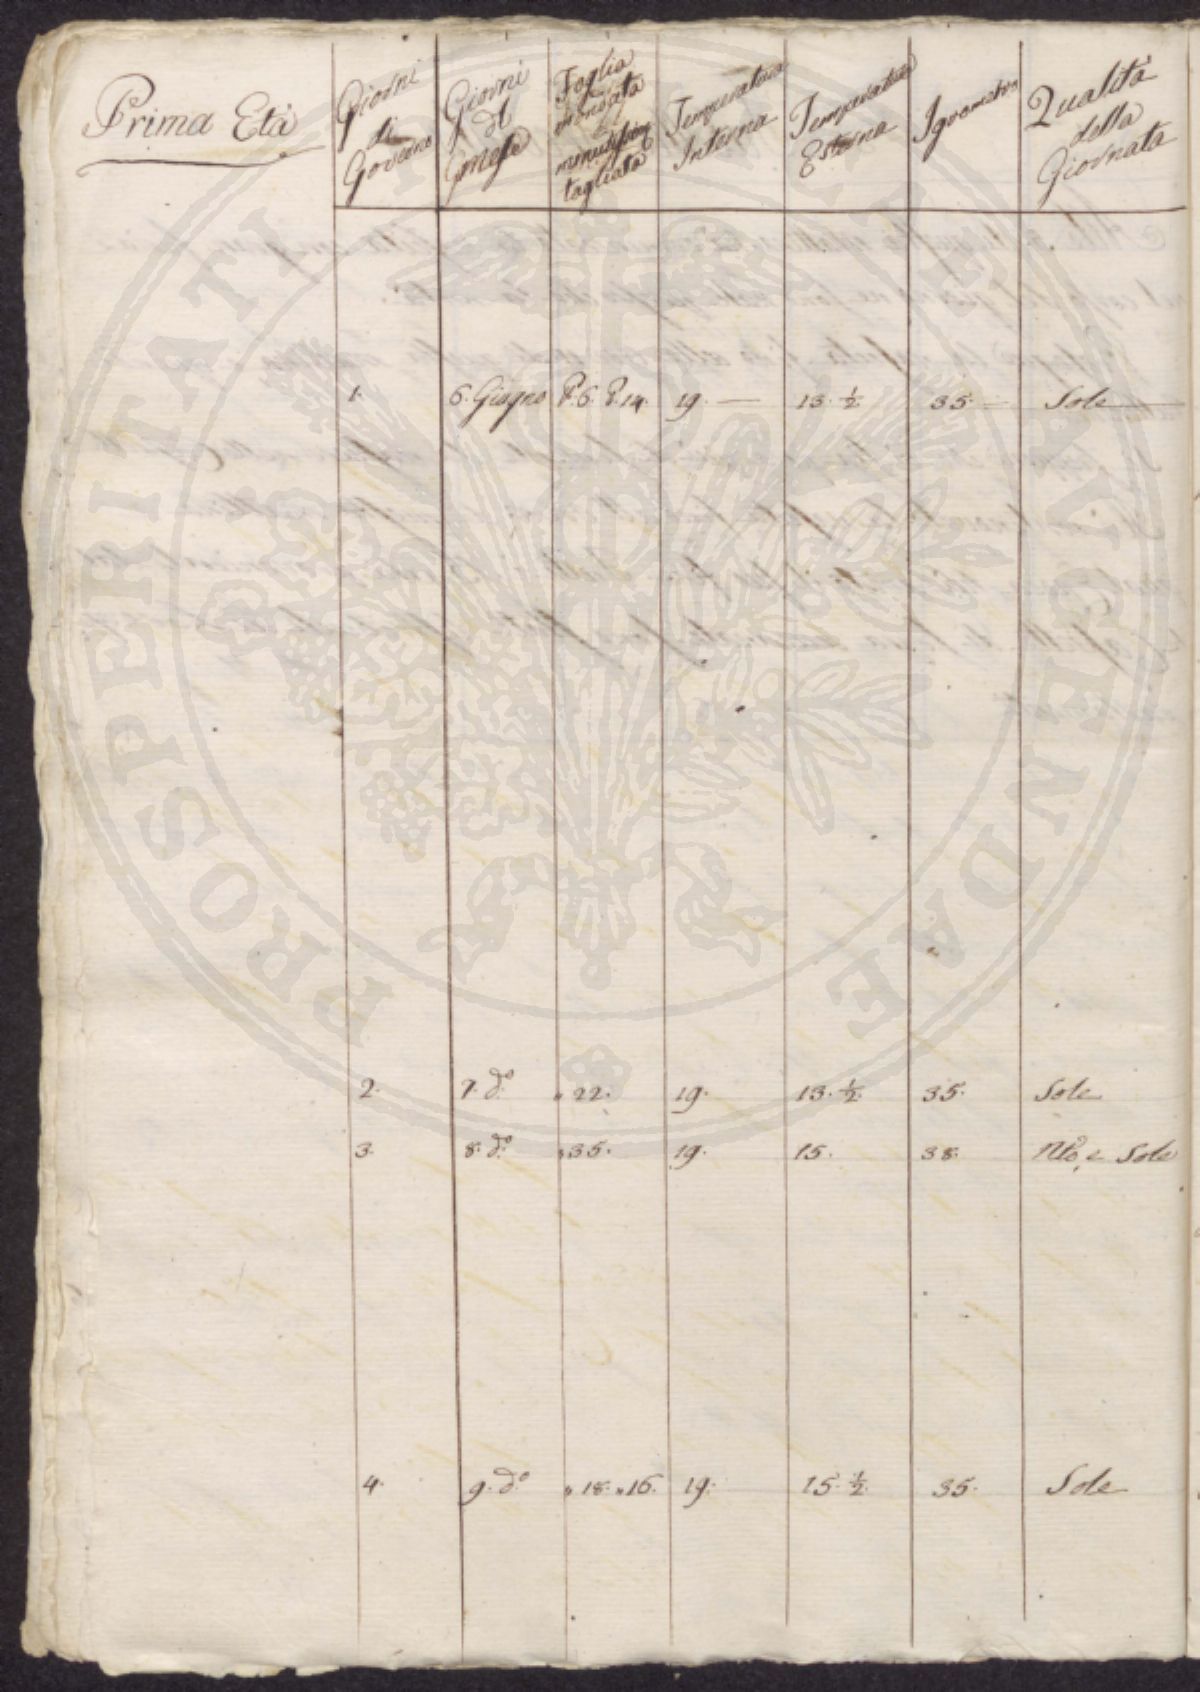 Prima Età
Giorni di Governo
Giorni del Mese
Foglia mondata e minutissim tagliata
Temperatura Interna
Temperatura Esterna
Igrometro
Qualità della Giornata
1. 6. Giugno P. 6. P. 14. 19. 13. ½ 35. Sole
2. 7. do „ 22. 19. 13. ½ 35. Sole
3. 8. do „ 35. 19. 15. 38. Nlo, e Sole
4. 9. do „ 18. „ 16. 19. 15. ½ 35. Sole
PROSPERITATI PUBLICAE AVGENDAE